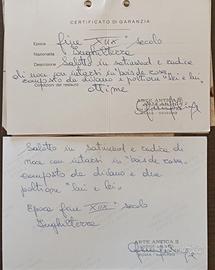 CERTIFICATO DI GARANZIA
Epoca fine XIIX° secolo
Nazionalità Inghilterra
Descrizione Salotto in satinwood e radice
di noce con intarsi in "bois de rose
composto da divano e poltrone "lui e lei".
Condizioni del restauro
ottime
ARTE ANTICA 2
Salotto in satinwood e radica di
noce con intarsi in "bois de rose"
composto da divano e due
poltrone "lui e lei".
Epoca fine XIIX° secolo
Inghilterra
ARTE ANTICA 2